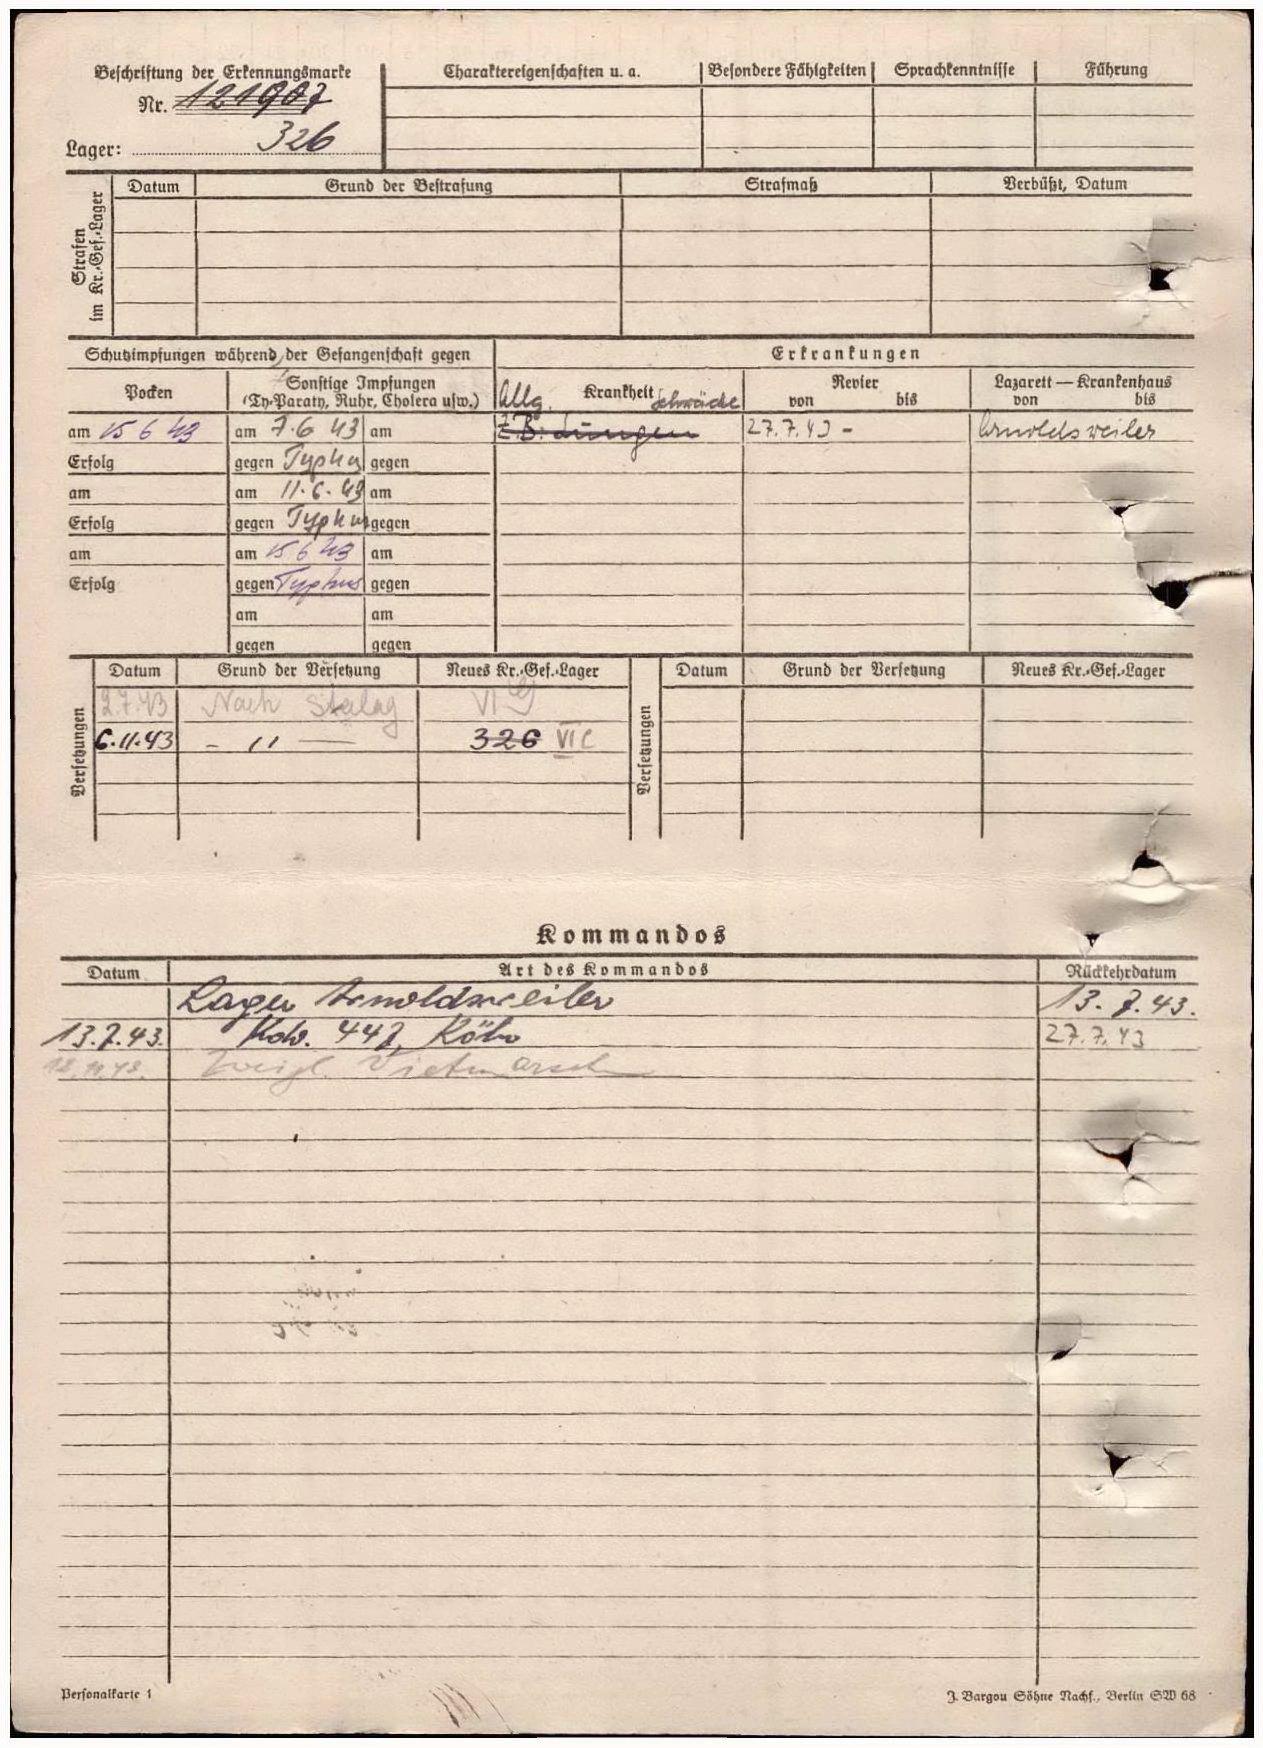 Beschriftung der Erkennungsmarke
Nr. 121907
Lager: 326
Charaktereigenschaften u. a.
Besondere Fähigkeiten
Sprachkenntnisse
Führung
Strafen
im Kr.-Gef.-Lager
Datum
Grund der Bestrafung
Strafmaß
Verbüßt, Datum
Schutzimpfungen während der Gefangenschaft gegen
Erkrankungen
Pocken
Sonstige Impfungen
(Ty-Paraty, Ruhr, Cholera usw.)
Allg. Krankheit schwäche
Revier
von bis
Lazarett — Krankenhaus
von bis
am 15 6 43 am 7.6 43 am
Z.B. Lungen 27.7.43 - Arnoldsweiler
Erfolg gegen Typhus gegen
am am 11.6.43 am
Erfolg gegen Typhus gegen
am am 15 6 43 am
Erfolg gegen Typhus gegen
am am
gegen gegen
Versetzungen
Datum Grund der Versetzung Neues Kr.-Gef.-Lager
2.7.43 Nach Stalag VI G
6.11.43 - " — 326 VI C
Versetzungen
Datum Grund der Versetzung Neues Kr.-Gef.-Lager
Kommandos
Datum Art des Kommandos Rückkehrdatum
Lager Arnoldsweiler 13.7.43.
13.7.43. Kdo. 447, Köln 27.7.43
Zweigl.
Personalkarte 1
J. Bargou Söhne Nachf., Berlin SW 68